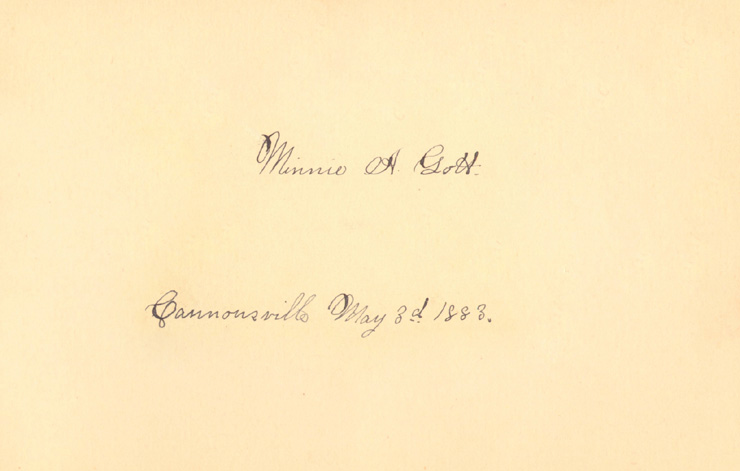 Minnie A. Gott.
Cannonsville May 3d. 1883.